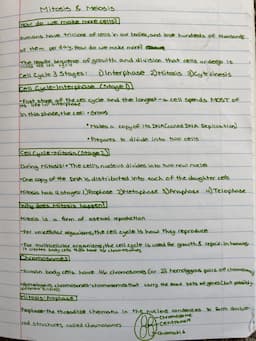 Mitosis & Meiosis
How do we make more cells?
Humans have trillions of cells in our bodies, and lose hundreds of thousands
of them per day. How do we make more?
The regular sequence of growth and division that cells undergo is
the cell cycle
Cell Cycle 3 Stages: 1) Interphase 2) Mitosis 3) Cytokinesis
Cell Cycle - Interphase (Stage 1)
• First stage of the cell cycle and the longest - a cell spends MOST of
its life in interphase
In this phase, the cell: • Grows
• Makes a copy of its DNA (called DNA Replication)
• Prepares to divide into two cells
Cell Cycle - Mitosis (Stage 2)
During Mitosis: • The cell's nucleus divides into two new nuclei
• One copy of the DNA is distributed into each of the daughter cells
Mitosis has 4 stages: 1) Prophase 2) Metaphase 3) Anaphase 4) Telophase
Why does Mitosis happen?
Mitosis is a form of asexual reproduction
• For unicellular organisms, the cell cycle is how they reproduce
• For multicellular organisms, the cell cycle is used for growth & repair. In humans,
it creates body cells that have 46 chromosomes
Chromosomes
• Human body cells have 46 chromosomes (or 23 homologous pairs of chromosomes)
• Homologous chromosomes: chromosomes that carry the same sets of genes (but possibly
Mitosis: Prophase
Prophase: the threadlike chromatin in the nucleus condenses to form double-
rod structures called chromosomes
Chromosome
Centromere
Chromatid